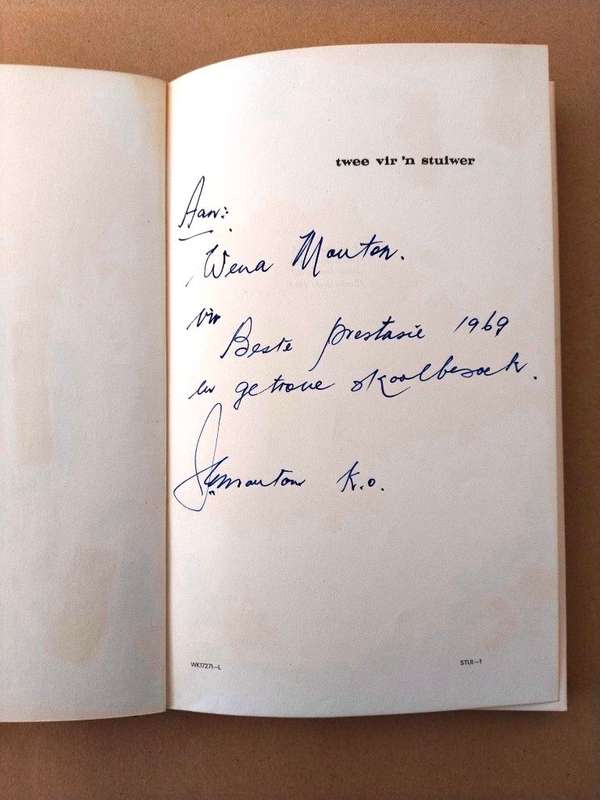 twee vir 'n stuiwer
Aan:
Wena Mouton.
vir
Beste prestasie 1969
en getroue skoolbesoek.
Mouton K.O.
WK17271-L
STUI-1